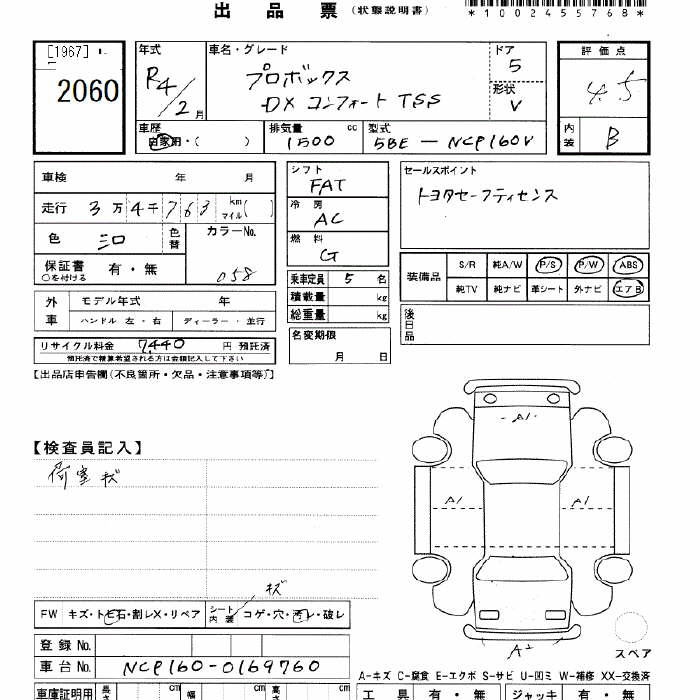 出品票 (状態説明書)
*1002455768*
[1967]
2060
年式
R4/2月
車名・グレード
プロボックス
DX コンフォート TSS
ドア
5
形状
V
評価点
4.5
内装
B
車歴
自家用・( )
排気量
1500 cc
型式
5BE - NCP160V
車検 年 月
走行 3万4千763 km マイル( )
色
シロ
色替
カラーNo.
058
保証書
○を付ける
有・無
シフト
FAT
冷房
AC
燃料
G
セールスポイント
トヨタセーフティセンス
装備品
S/R 純A/W P/S P/W ABS
純TV 純ナビ 革シート 外ナビ エアB
外車
モデル年式 年
ハンドル 左・右 ディーラー・並行
乗車定員 5 名
積載量 kg
総重量 kg
後日品
リサイクル料金 7,440 円 預託済
預託済で精算希望される方は金額記入して下さい
名変期限
月 日
【出品店申告欄(不良箇所・欠品・注意事項等)】
A1
【検査員記入】
荷室キズ
A1 A1
キズ
FW キズ・トビ石・割レX・リペア
シート内装 コゲ・穴・汚レ・破レ
登録No.
A2
スペア
車台No. NCP160-0169760
A-キズ C-腐食 E-エクボ S-サビ U-凹ミ W-補修 XX-交換済
車庫証明用 長さ cm 幅 cm 高さ cm
工具 有・無 ジャッキ 有・無